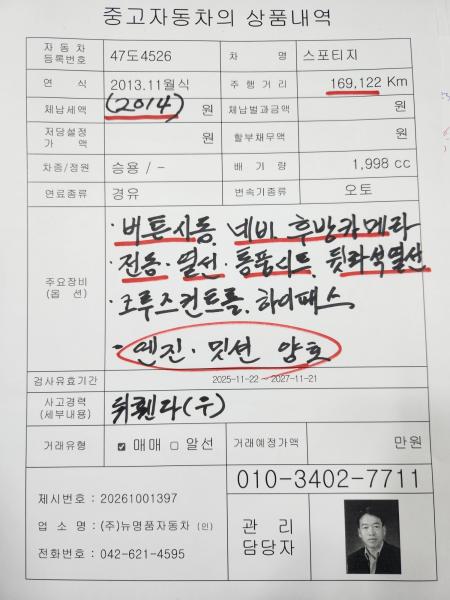 중고자동차의 상품내역
자동차등록번호 47도4526 차 명 스포티지
연 식 2013.11월식 주행거리 169,122 Km
체납세액 (2014) 원 체납벌과금액 원
저당설정가 액 원 할부채무액 원
차종/정원 승용 / - 배 기 량 1,998 cc
연료종류 경유 변속기종류 오토
주요장비(옵 션)
· 버튼시동, 네비, 후방카메라
· 전동·열선·통풍시트, 뒷좌석열선
· 크루즈컨트롤, 하이패스
· 엔진·밋션 양호
검사유효기간 2025-11-22 ~ 2027-11-21
사고경력(세부내용) 뒤휀다(우)
거래유형 ☑ 매매 □ 알선 거래예정가액 만원
010-3402-7711
제시번호 : 20261001397
업 소 명 : (주)뉴명품자동차 (인)
전화번호 : 042-621-4595
관 리
담당자